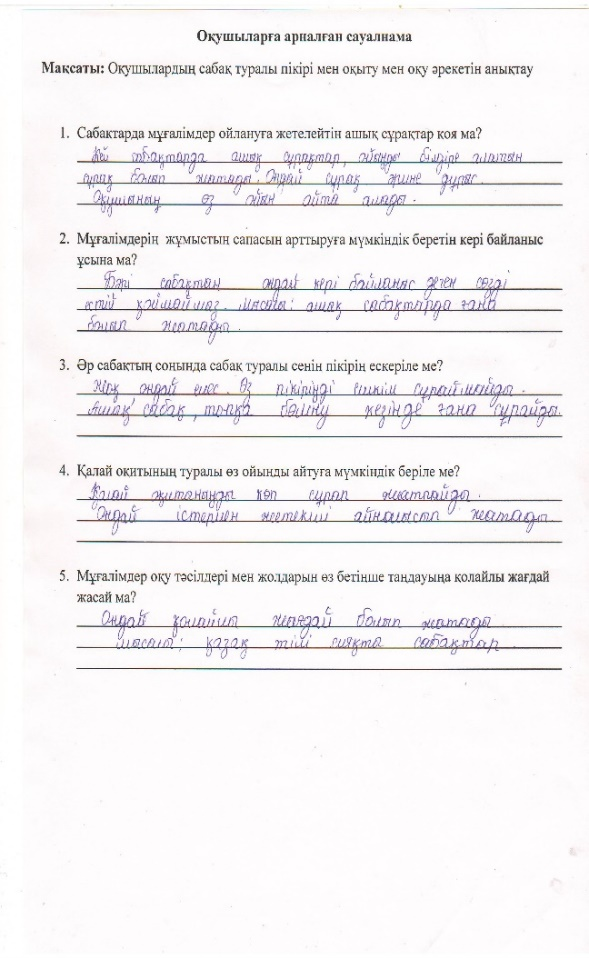 Оқушыларға арналған сауалнама
Мақсаты: Оқушылардың сабақ туралы пікірі мен оқыту мен оқу әрекетін анықтау
1. Сабақтарда мұғалімдер ойлануға жетелейтін ашық сұрақтар қоя ма?
Кей сабақтарда ашық сұрақтар, ойыңды білдіре алатын
сұрақ болып жатады. Ондай сұрақ және дұрыс.
Оқушының өз ойын айта алады.
2. Мұғалімдерің жұмыстың сапасын арттыруға мүмкіндік беретін кері байланыс
ұсына ма?
Бәрі сабақтан ондай кері байланыс деген сөзді
естій қоймаймыз. Мысалы: ашық сабақтарда ғана
болып жатады.
3. Әр сабақтың соңында сабақ туралы сенін пікірін ескеріле ме?
Жоқ, ондай емес. Өз пікіріңді ешкім сұрайтынды.
Ашық сабақ, топқа бөліну кезінде ғана сұрайды.
4. Қалай оқитының туралы өз ойынды айтуға мүмкіндік беріле ме?
Қалай көп сұрап жатпайды.
Ондай істермен жетекші айналысып жатады.
5. Мұғалімдер оқу тәсілдері мен жолдарын өз бетінше таңдауыңа қолайлы жағдай
жасай ма?
Ондай қолайлы жағдай болып жатады
мысалы: қазақ тілі сияқта сабақтар.